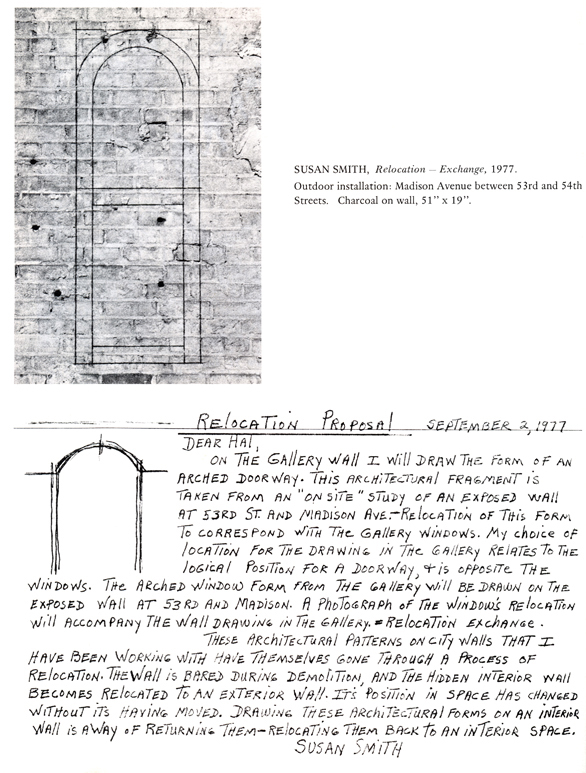 SUSAN SMITH, Relocation – Exchange, 1977.
Outdoor installation: Madison Avenue between 53rd and 54th
Streets. Charcoal on wall, 51" x 19".
RELOCATION PROPOSAL SEPTEMBER 2, 1977
DEAR HAL,
ON THE GALLERY WALL I WILL DRAW THE FORM OF AN
ARCHED DOORWAY. THIS ARCHITECTURAL FRAGMENT IS
TAKEN FROM AN "ON SITE" STUDY OF AN EXPOSED WALL
AT 53RD ST. AND MADISON AVE.-RELOCATION OF THIS FORM
TO CORRESPOND WITH THE GALLERY WINDOWS. MY CHOICE OF
LOCATION FOR THE DRAWING IN THE GALLERY RELATES TO THE
LOGICAL POSITION FOR A DOORWAY, & IS OPPOSITE THE
WINDOWS. THE ARCHED WINDOW FORM FROM THE GALLERY WILL BE DRAWN ON THE
EXPOSED WALL AT 53RD AND MADISON. A PHOTOGRAPH OF THE WINDOW'S RELOCATION
WILL ACCOMPANY THE WALL DRAWING IN THE GALLERY. = RELOCATION EXCHANGE.
THESE ARCHITECTURAL PATTERNS ON CITY WALLS THAT I
HAVE BEEN WORKING WITH HAVE THEMSELVES GONE THROUGH A PROCESS OF
RELOCATION. THE WALL IS BARED DURING DEMOLITION, AND THE HIDDEN INTERIOR WALL
BECOMES RELOCATED TO AN EXTERIOR WALL. ITS POSITION IN SPACE HAS CHANGED
WITHOUT ITS HAVING MOVED. DRAWING THESE ARCHITECTURAL FORMS ON AN INTERIOR
WALL IS A WAY OF RETURNING THEM-RELOCATING THEM BACK TO AN INTERIOR SPACE.
SUSAN SMITH